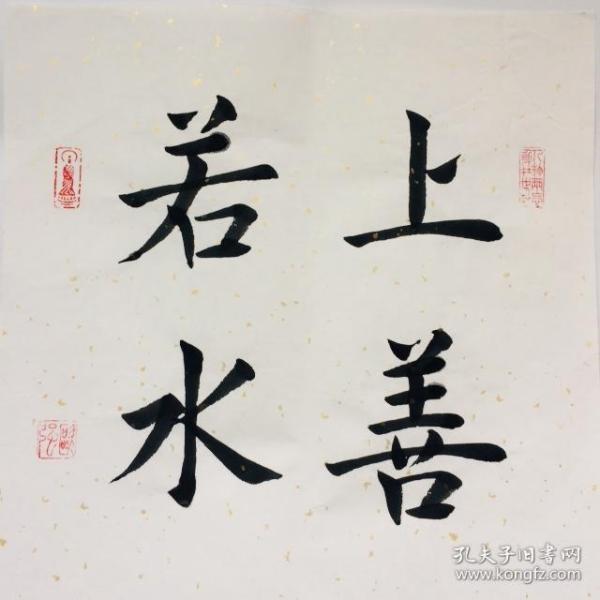 上善
若水
孔夫子旧书网
www.kongfz.com